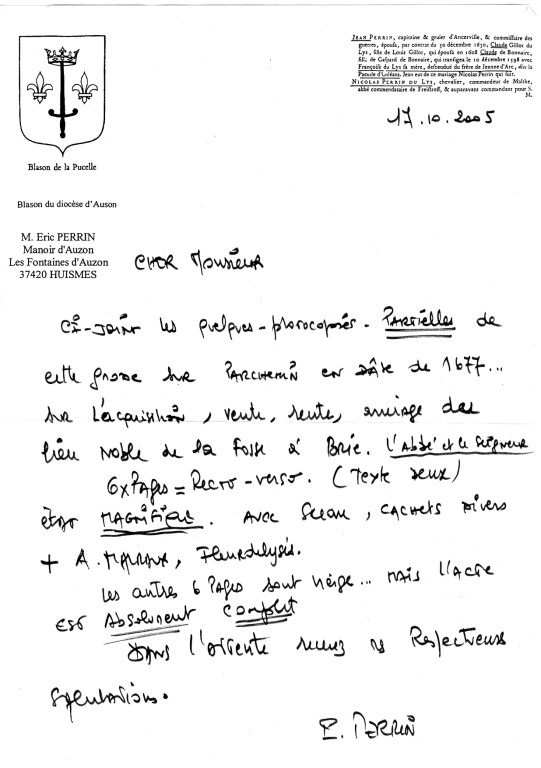 JEAN PERRIN, capitaine & gruier d'Ancerville, & commissaire des
guerres, épousa, par contrat du 30 décembre 1630, Claude Gillot du
Lys, fille de Louis Gillot, qui épousa en 1608 Claude de Bonnaire,
fille de Gaspard de Bonnaire, qui transigea le 10 décembre 1598 avec
Françoise du Lys sa mère, descendue du frère de Jeanne d'Arc, dite la
Pucelle d'Orléans. Jean eut de ce mariage Nicolas Perrin qui suit.
NICOLAS PERRIN DU LYS, chevalier, commandeur de Malthe,
abbé commendataire de Freistroff, & auparavant commandant pour S.
M.
17.10.2005
Blason de la Pucelle
Blason du diocèse d'Auson
M. Eric PERRIN
Manoir d'Auzon
Les Fontaines d'Auzon
37420 HUISMES
CHER Monsieur
Ci-joint les quelques-photocopies. PARTIELLES de
cette grosse sur PARCHEMIN en DATE de 1677...
sur l'acquisition, vente, rente, du
lieu Noble de la Fosse à Brie. L'Abbé et le Seigneur
6xPages = Recto-verso. (Texte deux)
état MAGNIFIQUE. Avec Sceau, CACHETS Divers
+ A. , Fleurdelysés.
Les autres 6 Pages sont ... MAIS l'Acte
EST Absolument Complet
DANS l'attente recevez Respectueuses
Salutations.
E. PERRIN